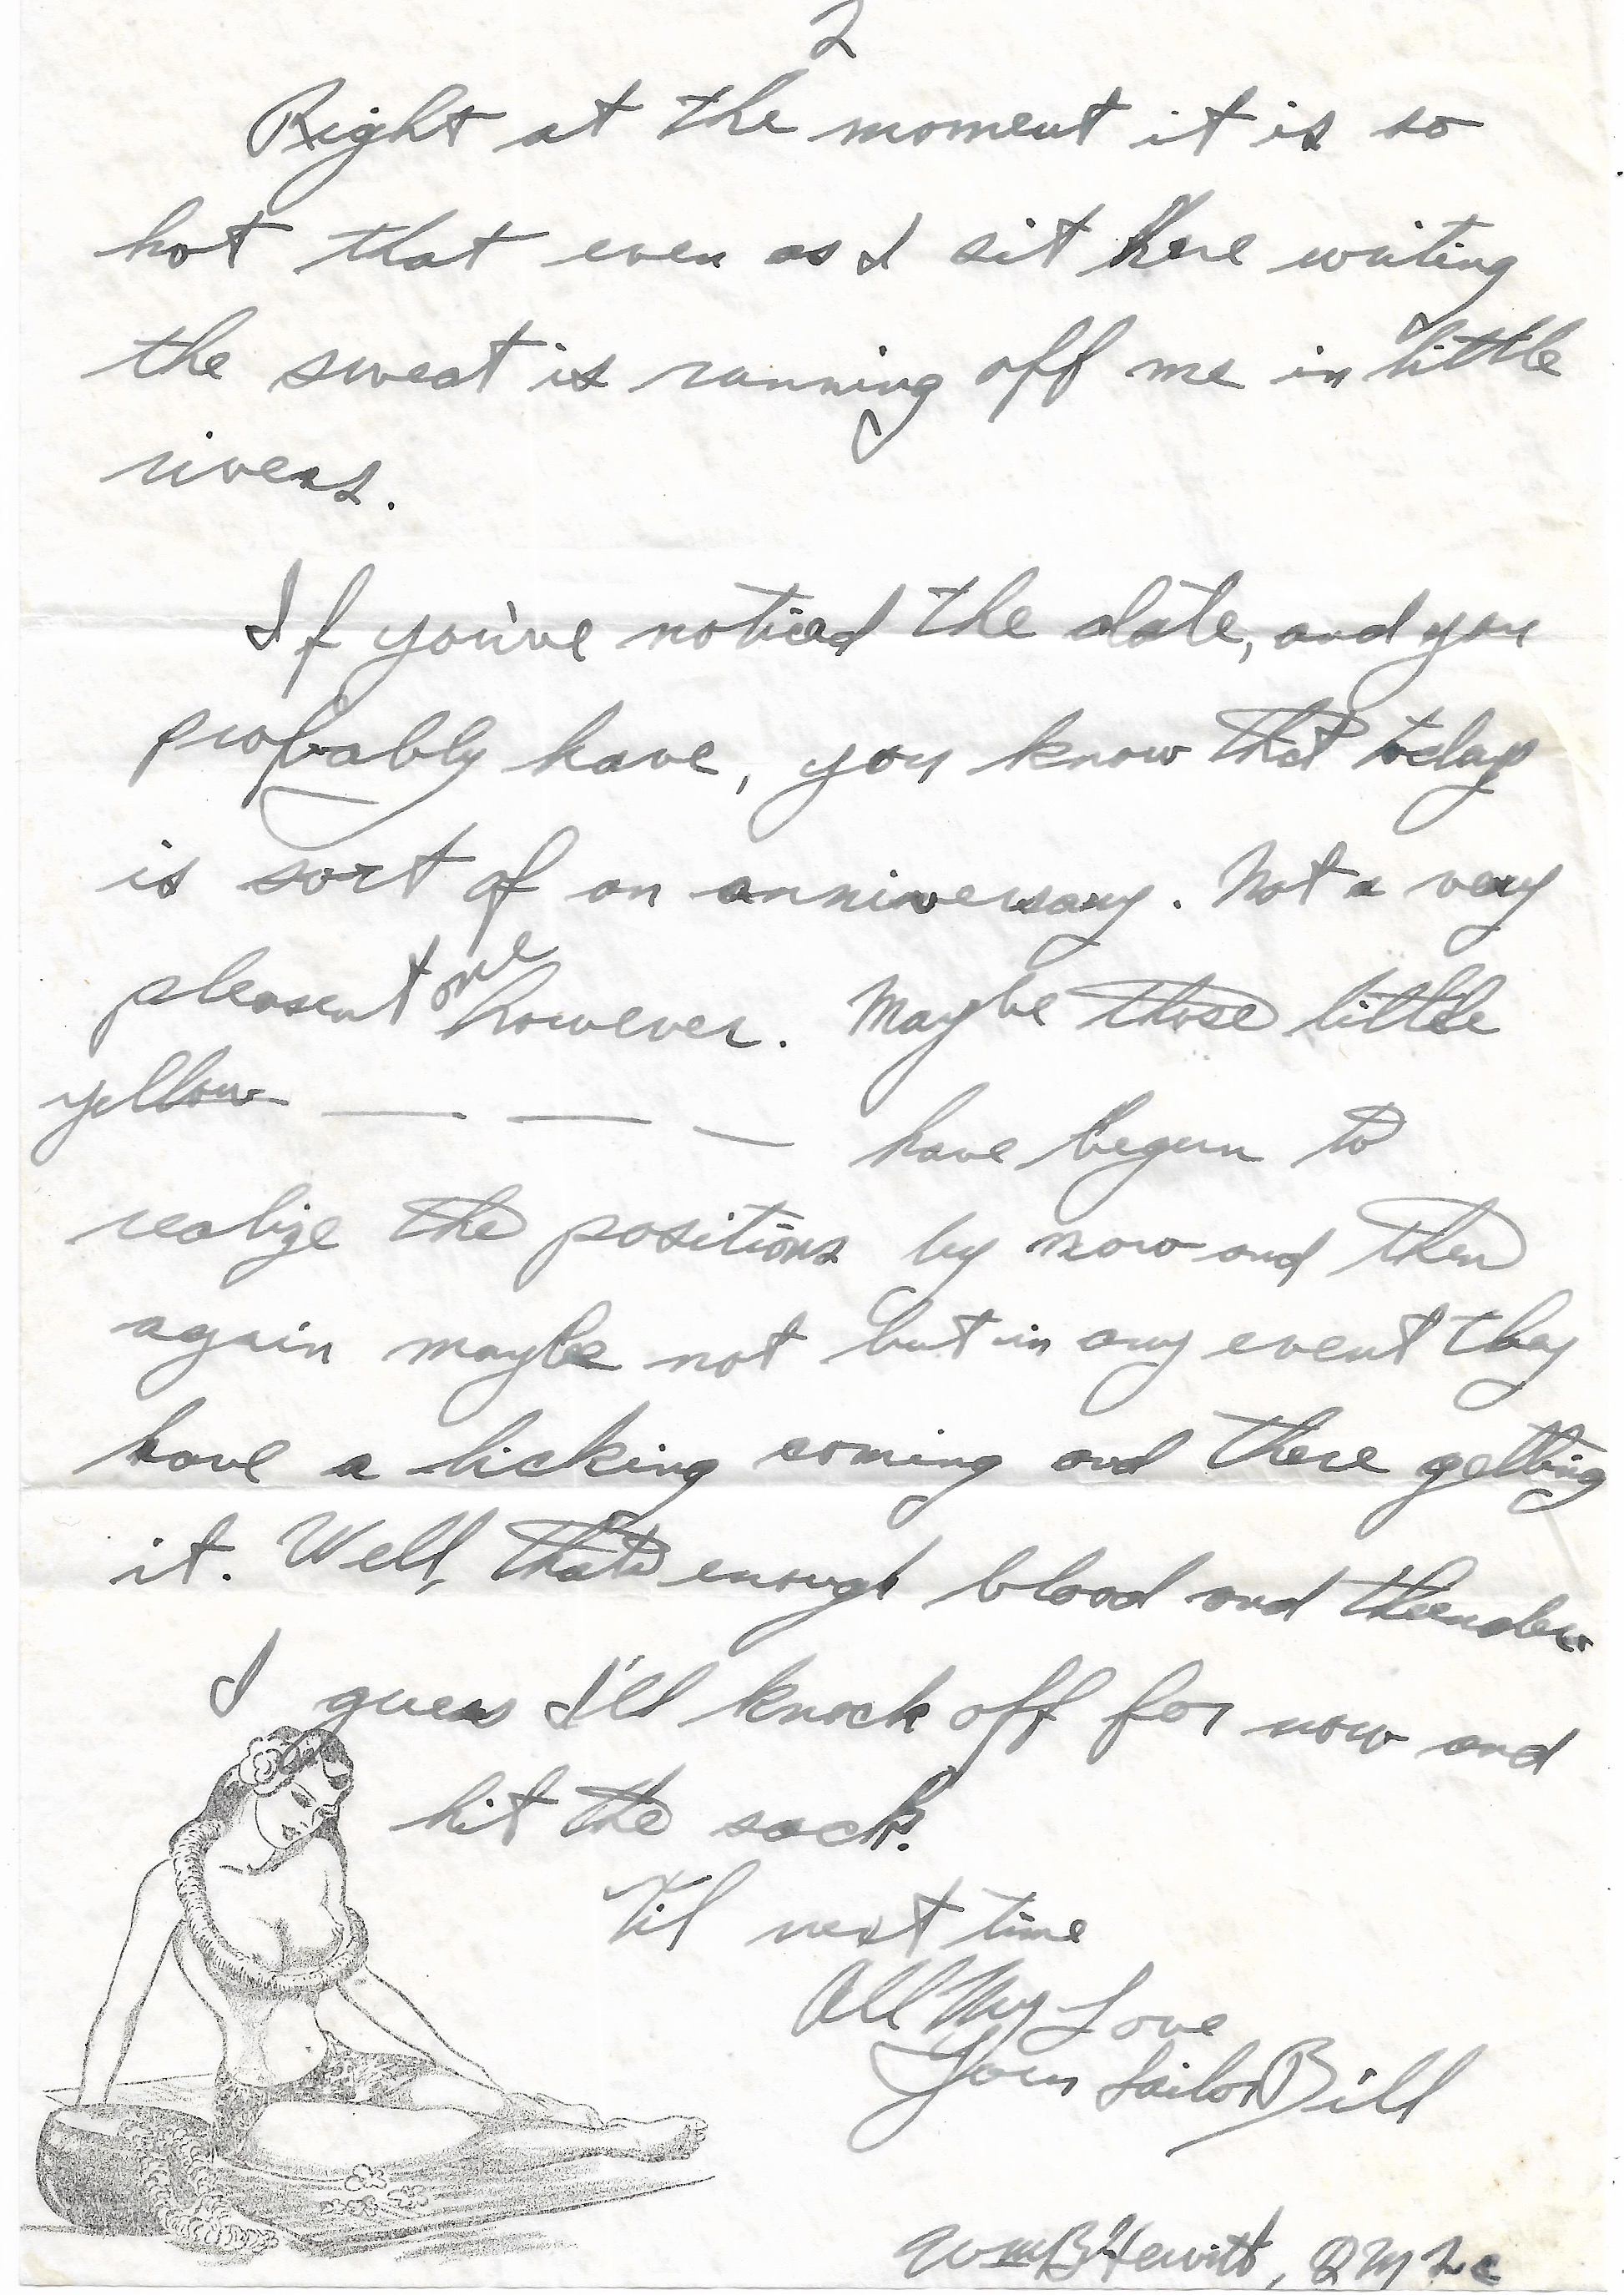 2
Right at the moment it is so
hot that even as I sit here writing
the sweat is running off me in little
rivers.
If you've noticed the date, and you
probably have, you know that today
is sort of an anniversary. Not a very
pleasent one however. Maybe those little
yellow — — — have begun to
realize the positions by now and then
again maybe not but in any event they
have a licking coming and there getting
it. Well, that's enough blood and thunder
I guess I'll knock off for now and
hit the sack.
'Til next time
All My Love
Your Sailor Bill
Wm B Hewitt, QM2c